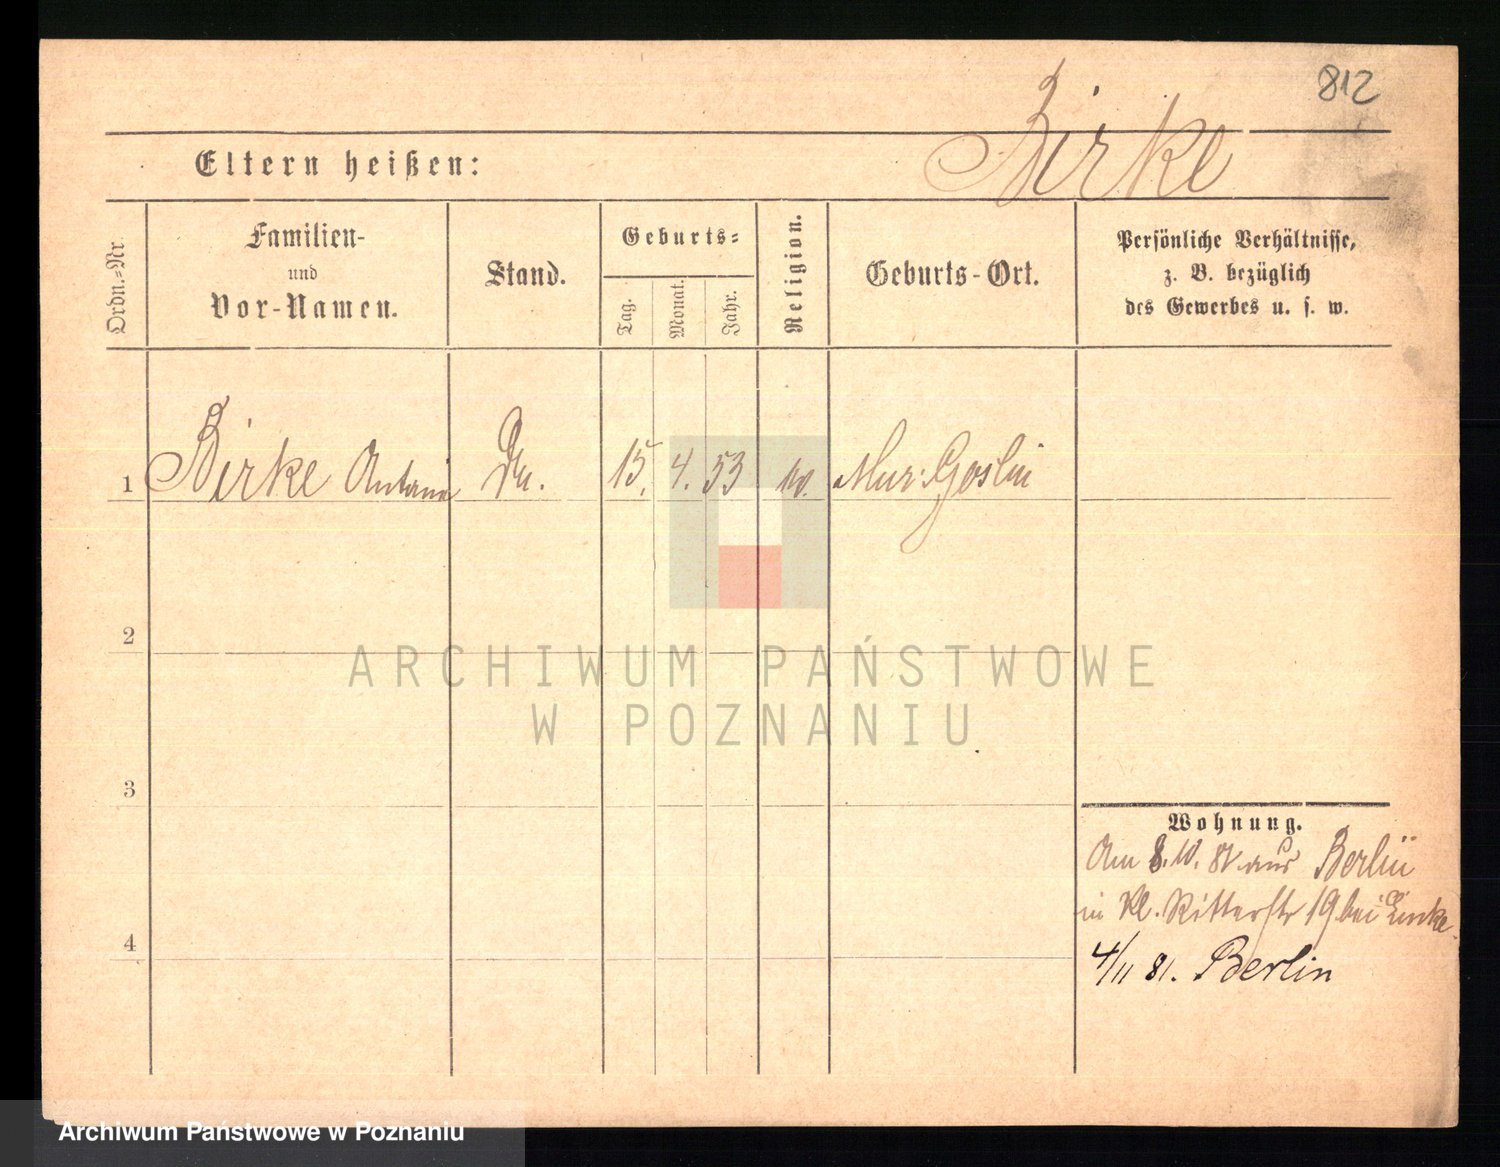 812
Birke
Eltern heißen:
Ordn.-Nr.
Familien-
und
Vor-Namen.
Stand.
Geburts-
Tag.
Monat.
Jahr.
Religion.
Geburts-Ort.
Persönliche Verhältnisse,
z. B. bezüglich
des Gewerbes u. s. w.
1 Birke Antonie 15. 4. 53 Mur: Goslin
2
3
4
ARCHIWUM PAŃSTWOWE
W POZNANIU
Wohnung.
Am 8.10. 81 aus Berlin
in Kl. Ritterstr 19 bei Linke.
4/11 81. Berlin
Archiwum Państwowe w Poznaniu